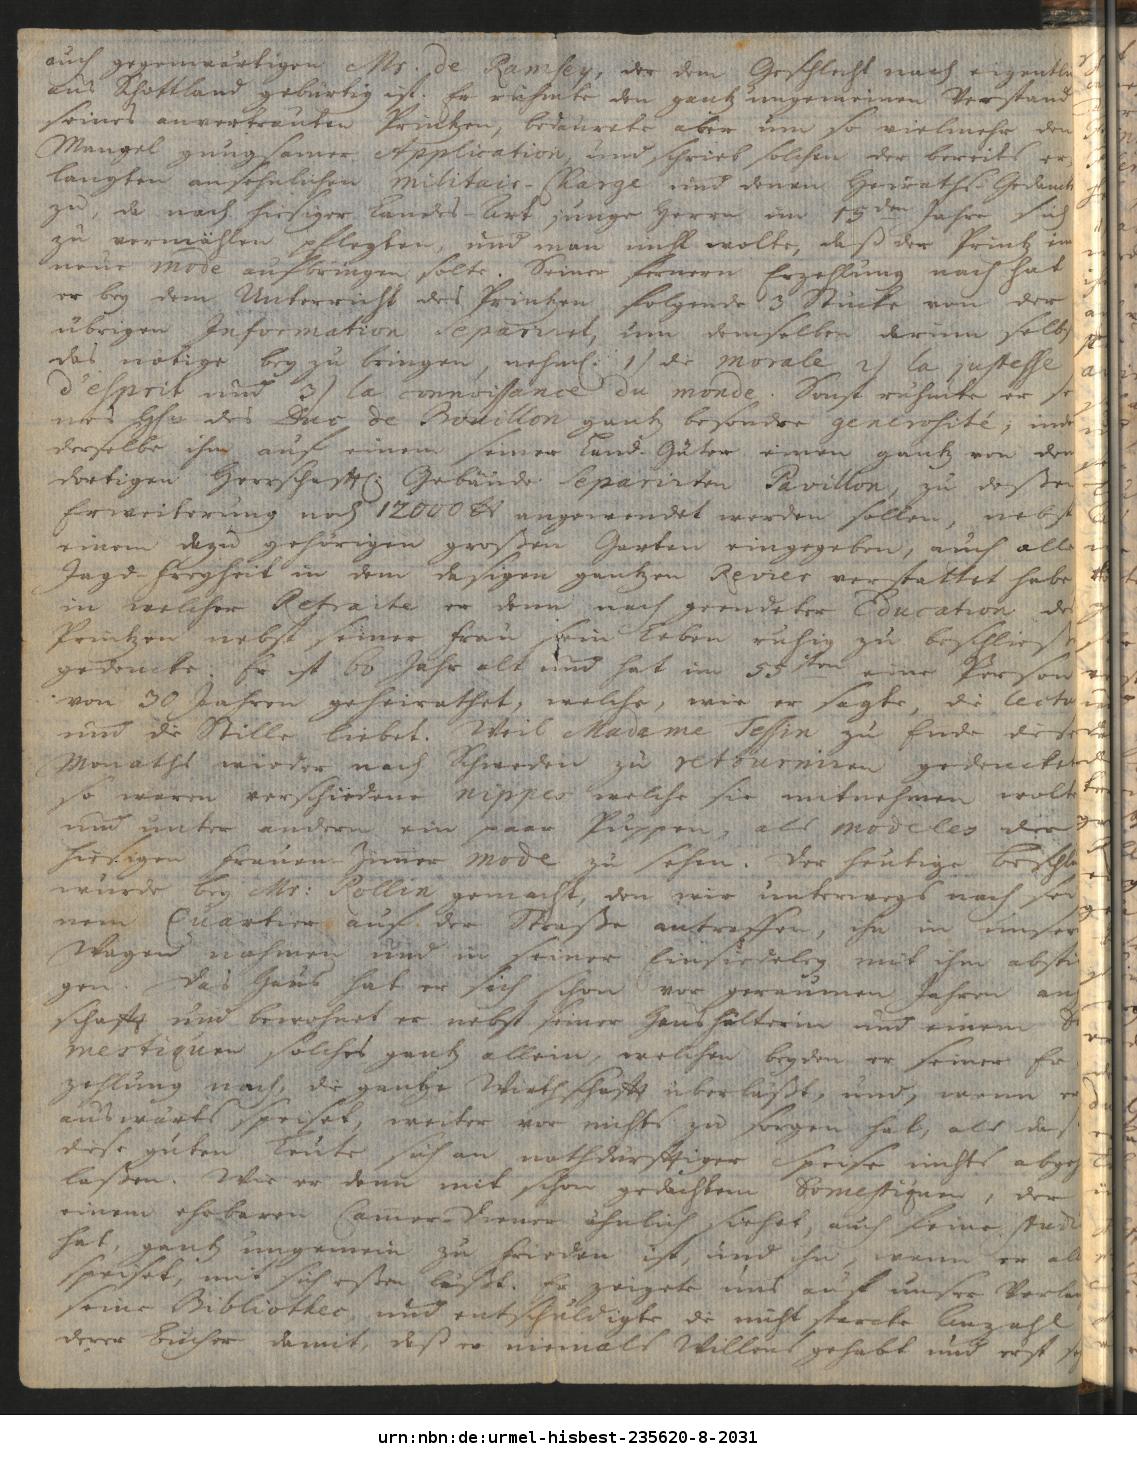 auch gegenwärtigen Mr. de Ramsey, der dem Geschlecht nach eigentl
aus Schottland gebürtig ist. Er rühmte den gantz ungemeinen Verstand
seines anvertrauten Printzen, bedaurete aber um so vielmehr den
Mangel gnugsamer Application, und schrieb solchen der bereits er,
langten ansehnlichen militair-Charge und denen Heiraths-Gedanck
zu, da nach hiesiger Landes-Art junge Herrn im 15den Jahre sich
zu vermählen pflegten, und man nicht wolte, daß der Printz in
neue mode aufbringen solte. Seiner fernern Erzehlung nach hat
er bey dem Unterricht des Printzen folgende 3 Stücke von der
übrigen Information separiret, um demselben darinn selbst
das nötige bey zu bringen, nehml: 1) die morale 2) la justesse
d'esprit und 3) la connoissance du monde. Sonst rühmte er sei
nes Hln des Duc de Bouillon gantz besondre generosité, inde
derselbe ihm auf einem seiner Land-Güter einen gantz von den
dortigen Herrschaftl: Gebäude separirten Pavillon, zu deßen
Erweiterung noch 12000 angewendet werden sollen, nebst
einem dazu gehörigen großen Garten eingegeben, auch alle
Jagd-Freyheit in dem dasigen gantzen Revier verstattet habe
in welcher Retraite er denn nach geendeter Education des
Printzen nebst seiner Frau sein Leben ruhig zu beschließen
gedencke. Er ist 60 Jahr alt und hat im 55sten eine Person
von 30 Jahren geheirathet, welche, wie er sagte, die lectu
und die Stille liebet. Weil Madame Tessin zu Ende dieses
Monaths wieder nach Schweden zu retourniren gedencket
so waren verschiedene nippes welche sie mitnehmen wolte
und unter andern ein paar Puppen, als modeles der
hiesigen Frauen-Zimer mode zu sehen. Der heutige Beschlu
wurde bey Mr: Rollin gemacht, den wir unterwegs nach sei
nem Quartier auf der Straße antraffen, ihn in unsern
Wagen nahmen und in seiner Einsiedeley mit ihm absti
gen. Das Haus hat er sich schon vor geraumen Jahren ang
schafft und bewohnet er nebst seiner Haushälterin und einem Do
mestiquen solches gantz allein, welchen beyden er seiner Er
zehlung nach, die gantze Wirthschafft überläßt, und, wenn er
auswärts speiset, weiter vor nichts zu sorgen hat, als daß
diese guten Leute sich an nothdürfftiger Speise nichts abgeh
laßen. Wie er denn mit schon gedachtem Domestiquen, der
einem ehrbaren Camer-Diener ähnlich siehet, auch seine studi
hat, gantz ungemein zu frieden ist, und ihn, wenn er alle
speiset, mit sich eßen läßt. Er zeigete uns auf unser Verlan
seine Bibliothec, und entschuldigte die nicht starcke Anzahl
derer Bücher damit, daß er niemals Willens gehabt und erst
urn:nbn:de:urmel-hisbest-235620-8-2031